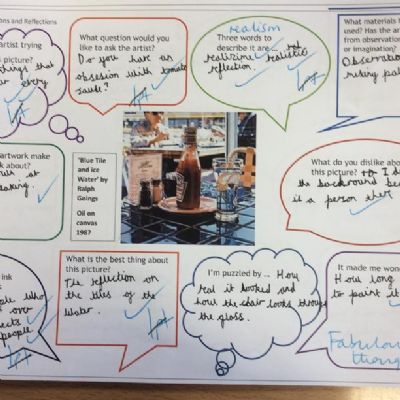 ons and Reflections
artist trying
picture?
things that
every
What question would you
like to ask the artist?
Do you have an
obsesion with tomato
sauce?
realism
Three words to
describe it are ...
realistic
reflection.
What materials
used? Has the art
from observation
or imagination?
Observation
artwork make
k about?
at
'Blue Tile
and Ice
Water' by
Ralph
Goings
Oil on
canvas
1987
What do you dislike about
this picture? I d
the background be
is a person there
ink
s
ople who
over
ects
people
What is the best thing about
this picture?
The reflection on
the tiles of the
water.
I'm puzzled by ... How
real it looked and
how the chair looks through
the glass.
It made me won
How long
to paint it
Fabulou
though